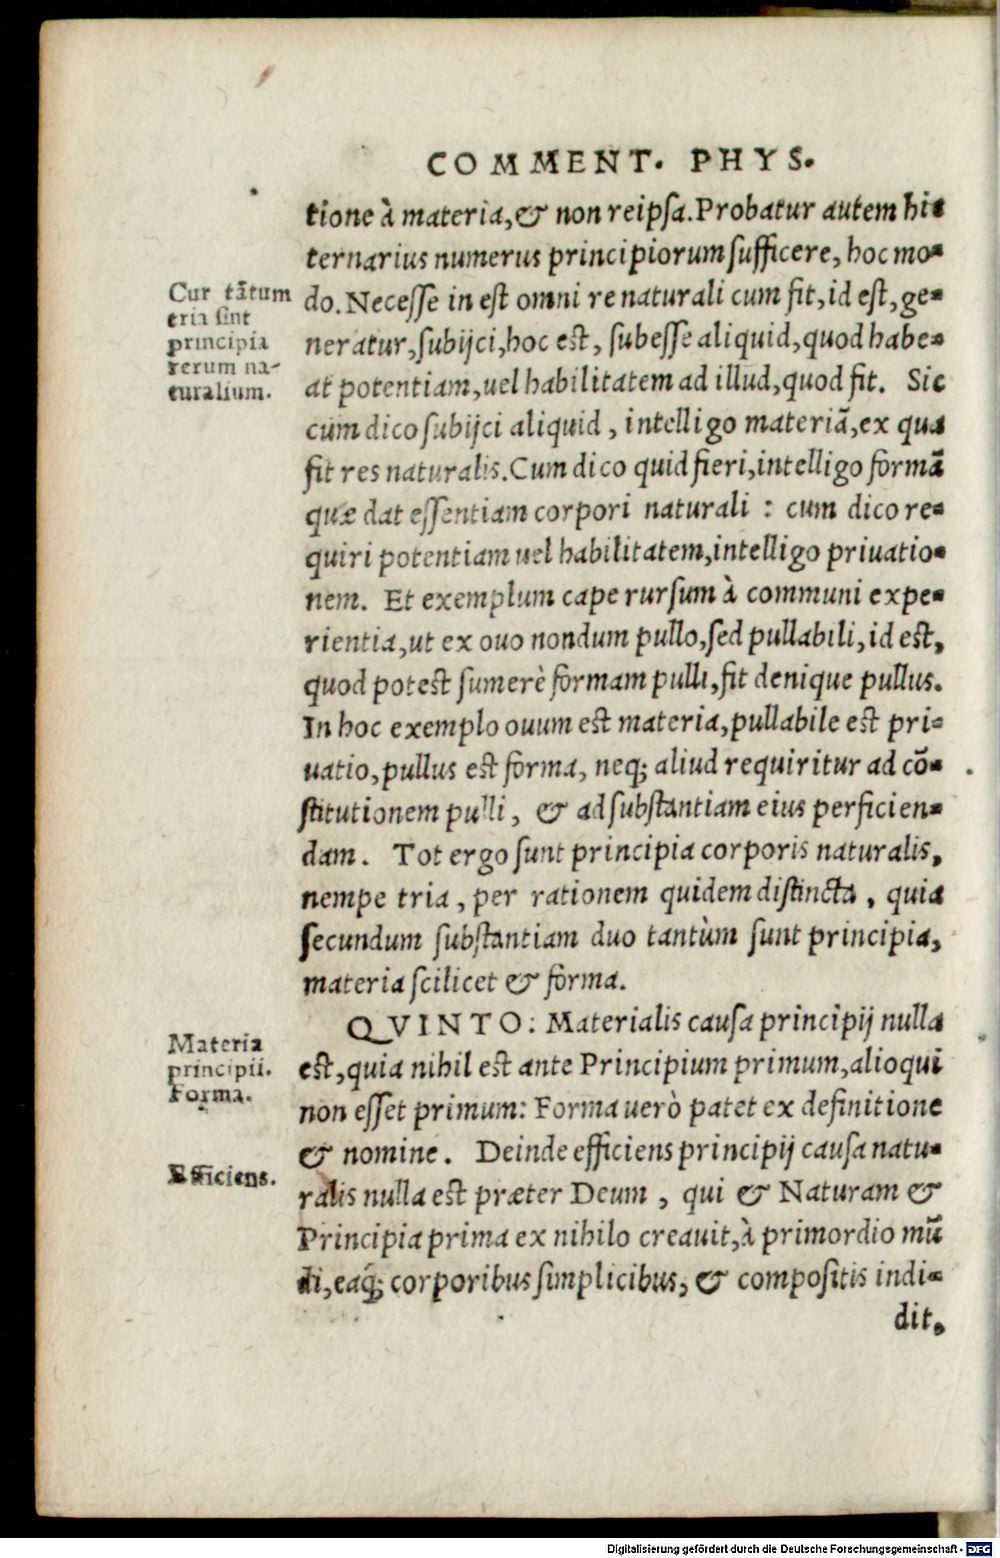 COMMENT. PHYS.
tione à materia, & non reipſa. Probatur autem hic
ternarius numerus principiorum ſufficere, hoc mo-
do. Neceſſe in eſt omni re naturali cum fit, id eſt, ge-
neratur, ſubijci, hoc eſt, ſubeſſe aliquid, quod habe-
at potentiam, uel habilitatem ad illud, quod fit. Sic
cùm dico ſubijci aliquid, intelligo materiā, ex qua
fit res naturalis. Cum dico quid fieri, intelligo formā
quæ dat eſſentiam corpori naturali : cum dico re-
quiri potentiam uel habilitatem, intelligo priuatio-
nem. Et exemplum cape rurſum à communi expe-
rientia, ut ex ouo nondum pullo, ſed pullabili, id eſt,
quod poteſt ſumerè formam pulli, fit denique pullus.
In hoc exemplo ouum eſt materia, pullabile eſt pri-
uatio, pullus eſt forma, neq; aliud requiritur ad cō-
ſtitutionem pulli, & ad ſubſtantiam eius perficien-
dam. Tot ergo ſunt principia corporis naturalis,
nempe tria, per rationem quidem diſtincta, quia
ſecundum ſubſtantiam duo tantùm ſunt principia,
materia ſcilicet & forma.
QVINTO: Materialis cauſa principij nulla
eſt, quia nihil eſt ante Principium primum, alioqui
non eſſet primum: Forma uerò patet ex definitione
& nomine. Deinde efficiens principij cauſa natu-
ralis nulla eſt præter Deum, qui & Naturam &
Principia prima ex nihilo creauit, à primordio mū
di, eaq́; corporibus ſimplicibus, & compoſitis indi-
dit,
Cur tātum
tria ſint
principia
rerum na-
turalium.
Materia
principii.
Forma.
Efficiens.
Digitalisierung gefördert durch die Deutsche Forschungsgemeinschaft - DFG